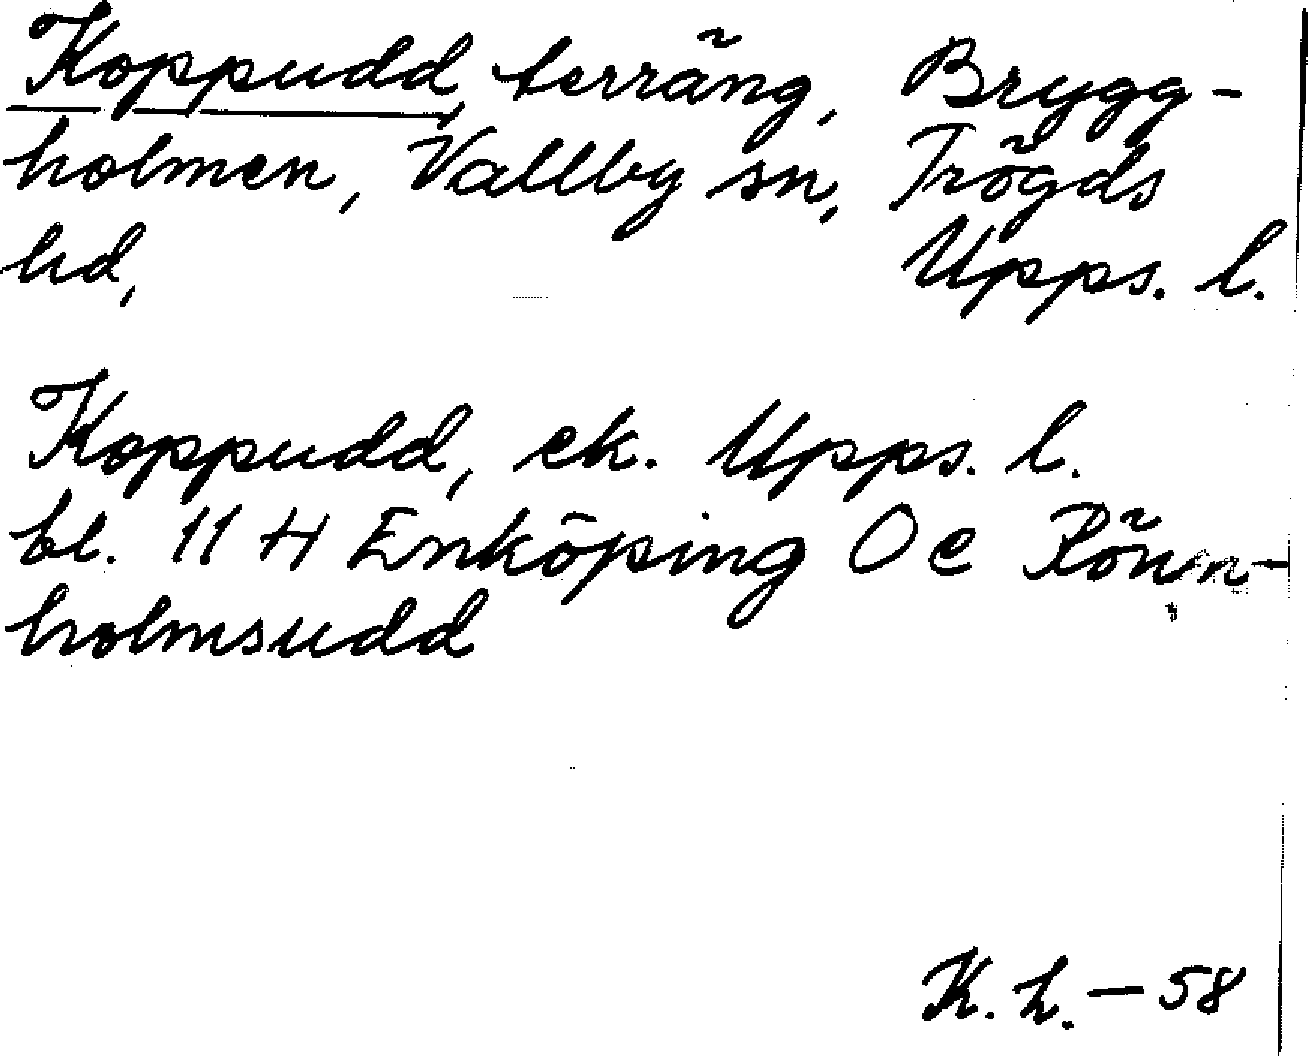 Koppudd, terräng, Brygg-
holmen, Vallby sn, Trögds
hd, Upps. l.
Koppudd, ek. Upps. l.
bl. 11 H Enköping O e Rönn-
holmsudd
K. h. - 58